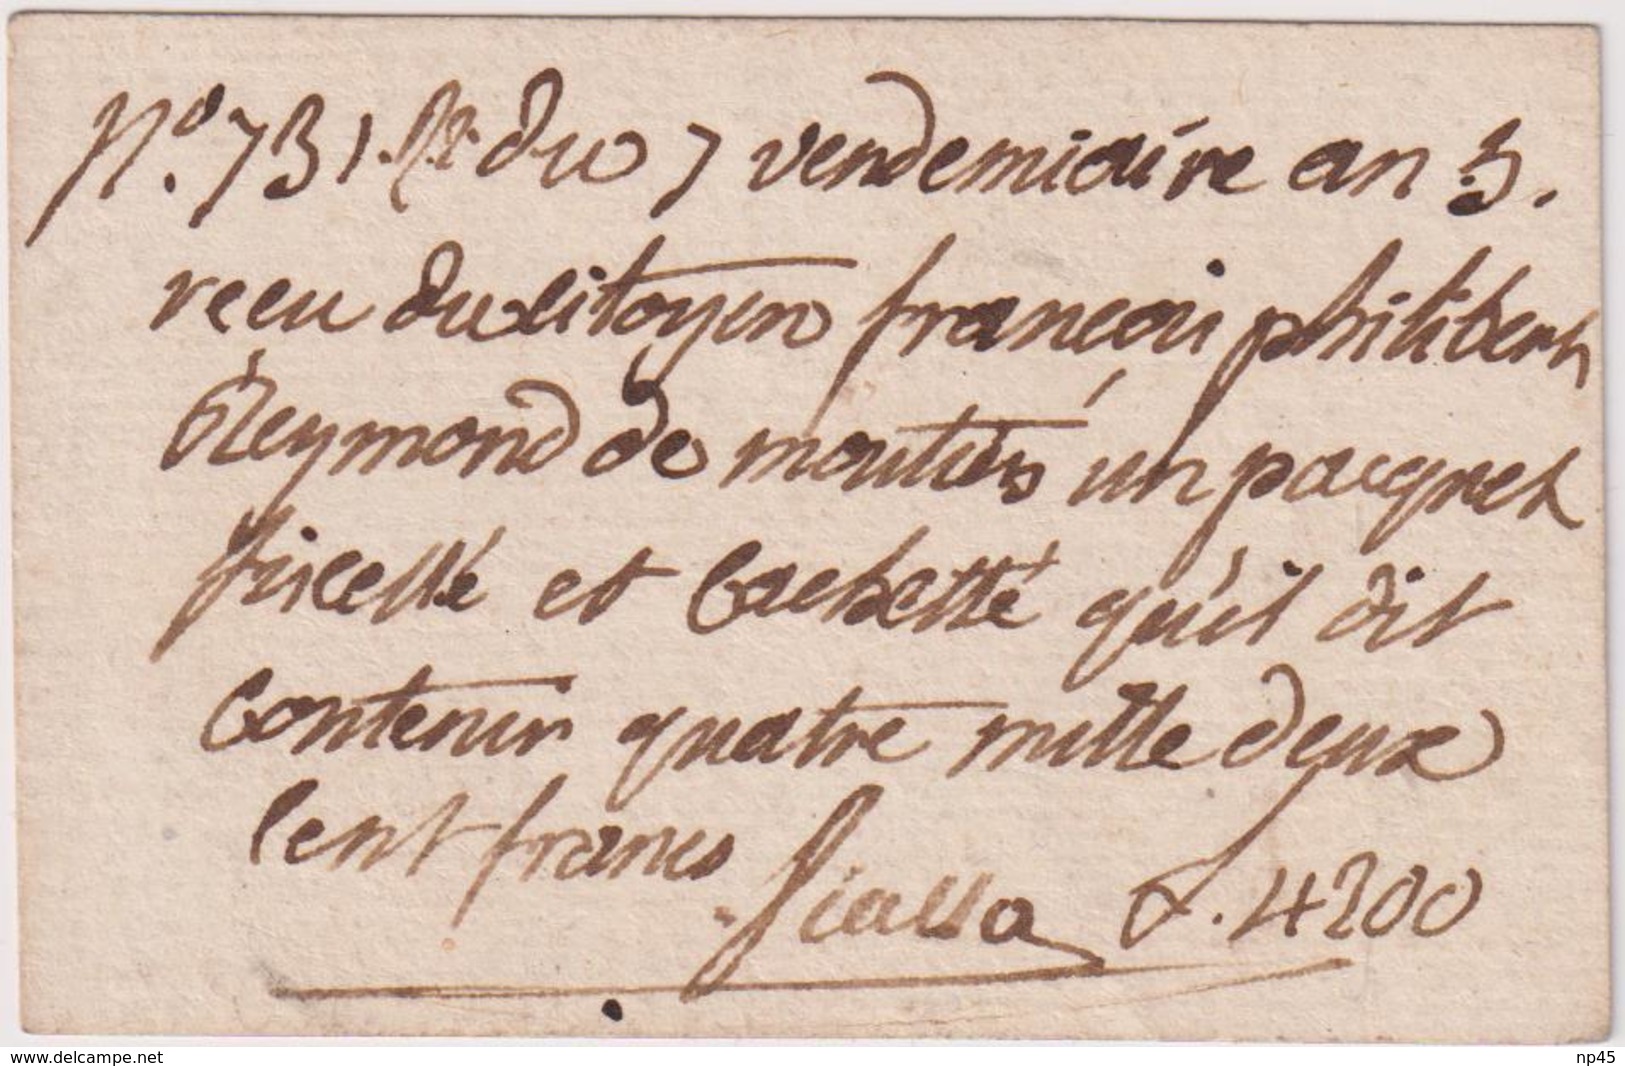 N.o 731. du 7 vendemiaire an 5.
receu du Citoyen françois philibert
Reymond de moutiers un pacquet
ficellé et Cachetté qu'il dit
Contenir quatre mille deux
Cent francs fialla 4200
www.delcampe.net np45